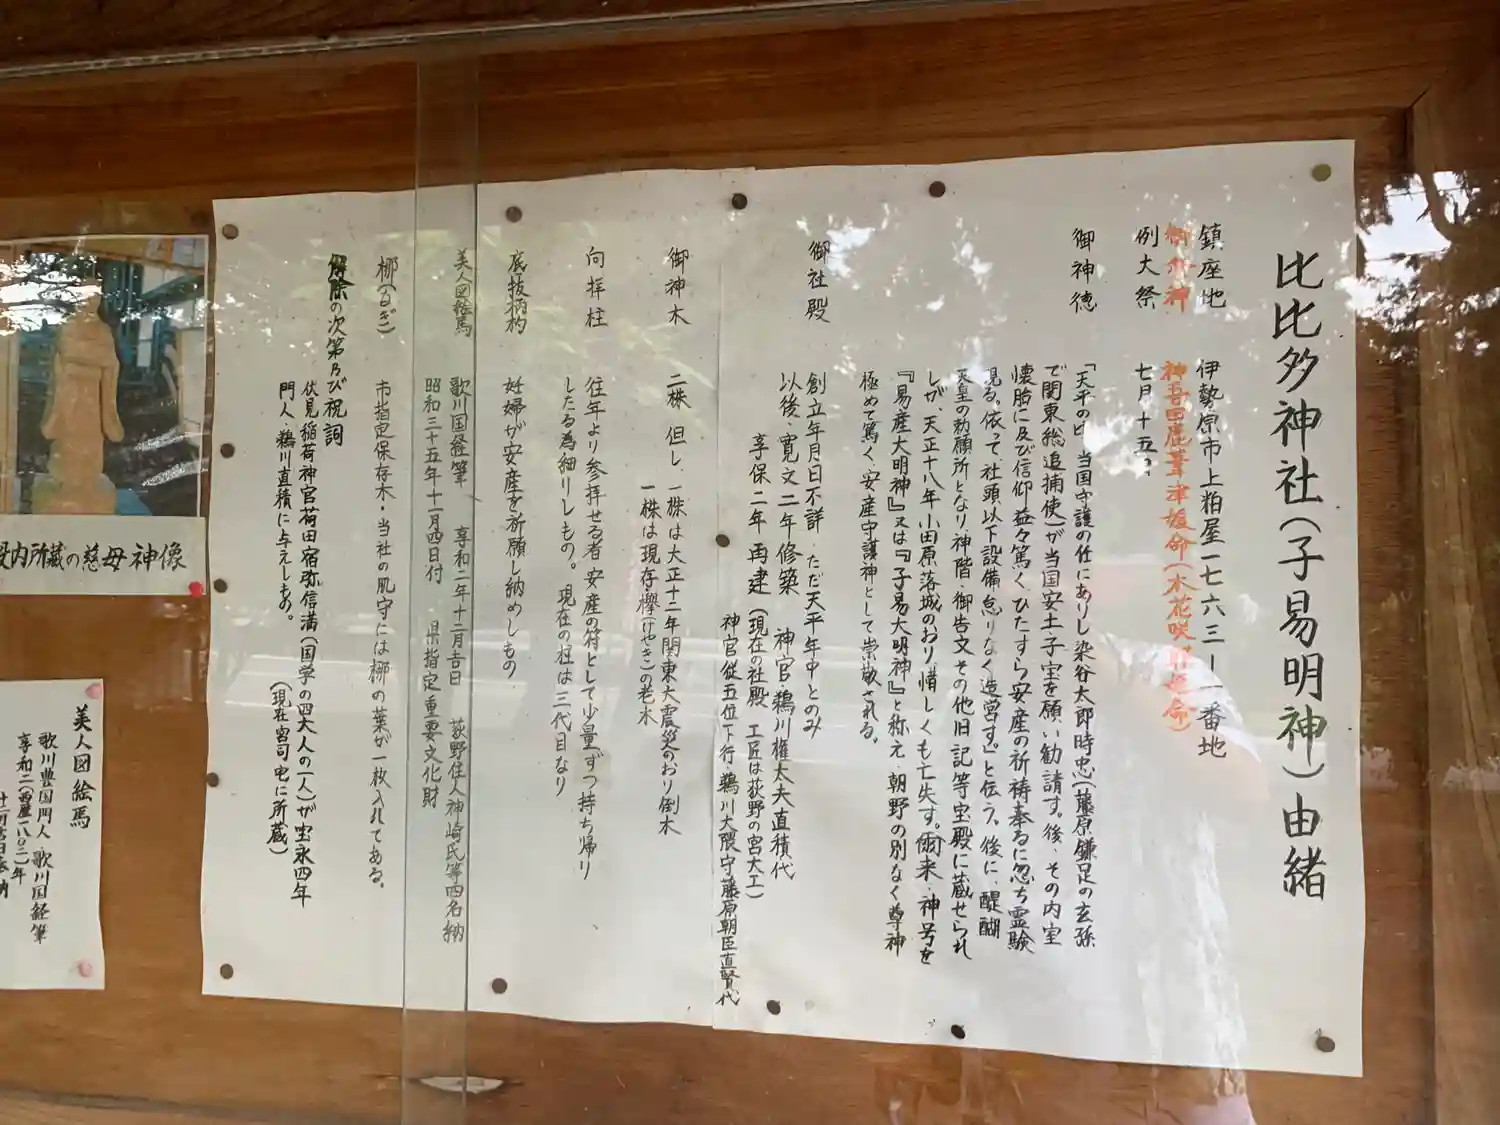 比比多神社(子易明神)由緒
鎮座地 伊勢原市上粕屋一七六三—一番地
御祭神 神吾田鹿葦津姫命(木花咲耶姫命)
例大祭 七月十五日
御神徳 「天平の中 当国守護の任にありし染谷太郎時忠(藤原鎌足の玄孫
で関東総追捕使)が当国安土子宝を願い勧請す。後、その内室
懐胎に及び信仰益々篤く、ひたすら安産の祈祷奉るに忽ち霊験
見る。依って社頭以下設備怠りなく造営す。」と伝う。後に、醍醐
天皇の勅願所となり神階・御告文その他旧記等宝殿に蔵せられ
しが、天正十八年小田原落城のおり惜しくも亡失す。爾来、神号を
『易産大明神』又は『子易大明神』と称え、朝野の別なく尊神
極めて篤く、安産守護神として崇敬される。
御社殿 創立年月日不詳 ただ天平年中とのみ
以後、寛文二年修築 神官鵜川権太夫直積代
享保二年再建(現在の社殿 工匠は荻野の宮大工)
神官従五位下行・鵜川大隈守藤原朝臣直賢代
御神木 二株 但し、一株は大正十二年関東大震災のおり倒木
一株は現存欅(けやき)の老木
向拝柱 往年より参拝せる者 安産の符として少量ずつ持ち帰り
したる為細りしもの。現在の柱は三代目なり
底抜柄杓 妊婦が安産を祈願し納めしもの
美人図絵馬 歌川国経筆 享和二年十二月吉日 荻野住人神崎氏等四名納
昭和三十五年十一月四日付 県指定重要文化財
梛(なぎ) 市指定保存木・当社の肌守には梛の葉が一枚入れてある。
解除の次第及び祝詞
伏見稲荷神官荷田宿弥信満(国学の四大人の一人)が宝永四年
門人・鵜川直積に与えしもの。(現在宮司宅に所蔵)
殿内所蔵の慈母神像
美人図絵馬
歌川豊国門人・歌川国経筆
享和二(西暦一八〇二)年
十二月吉日奉納